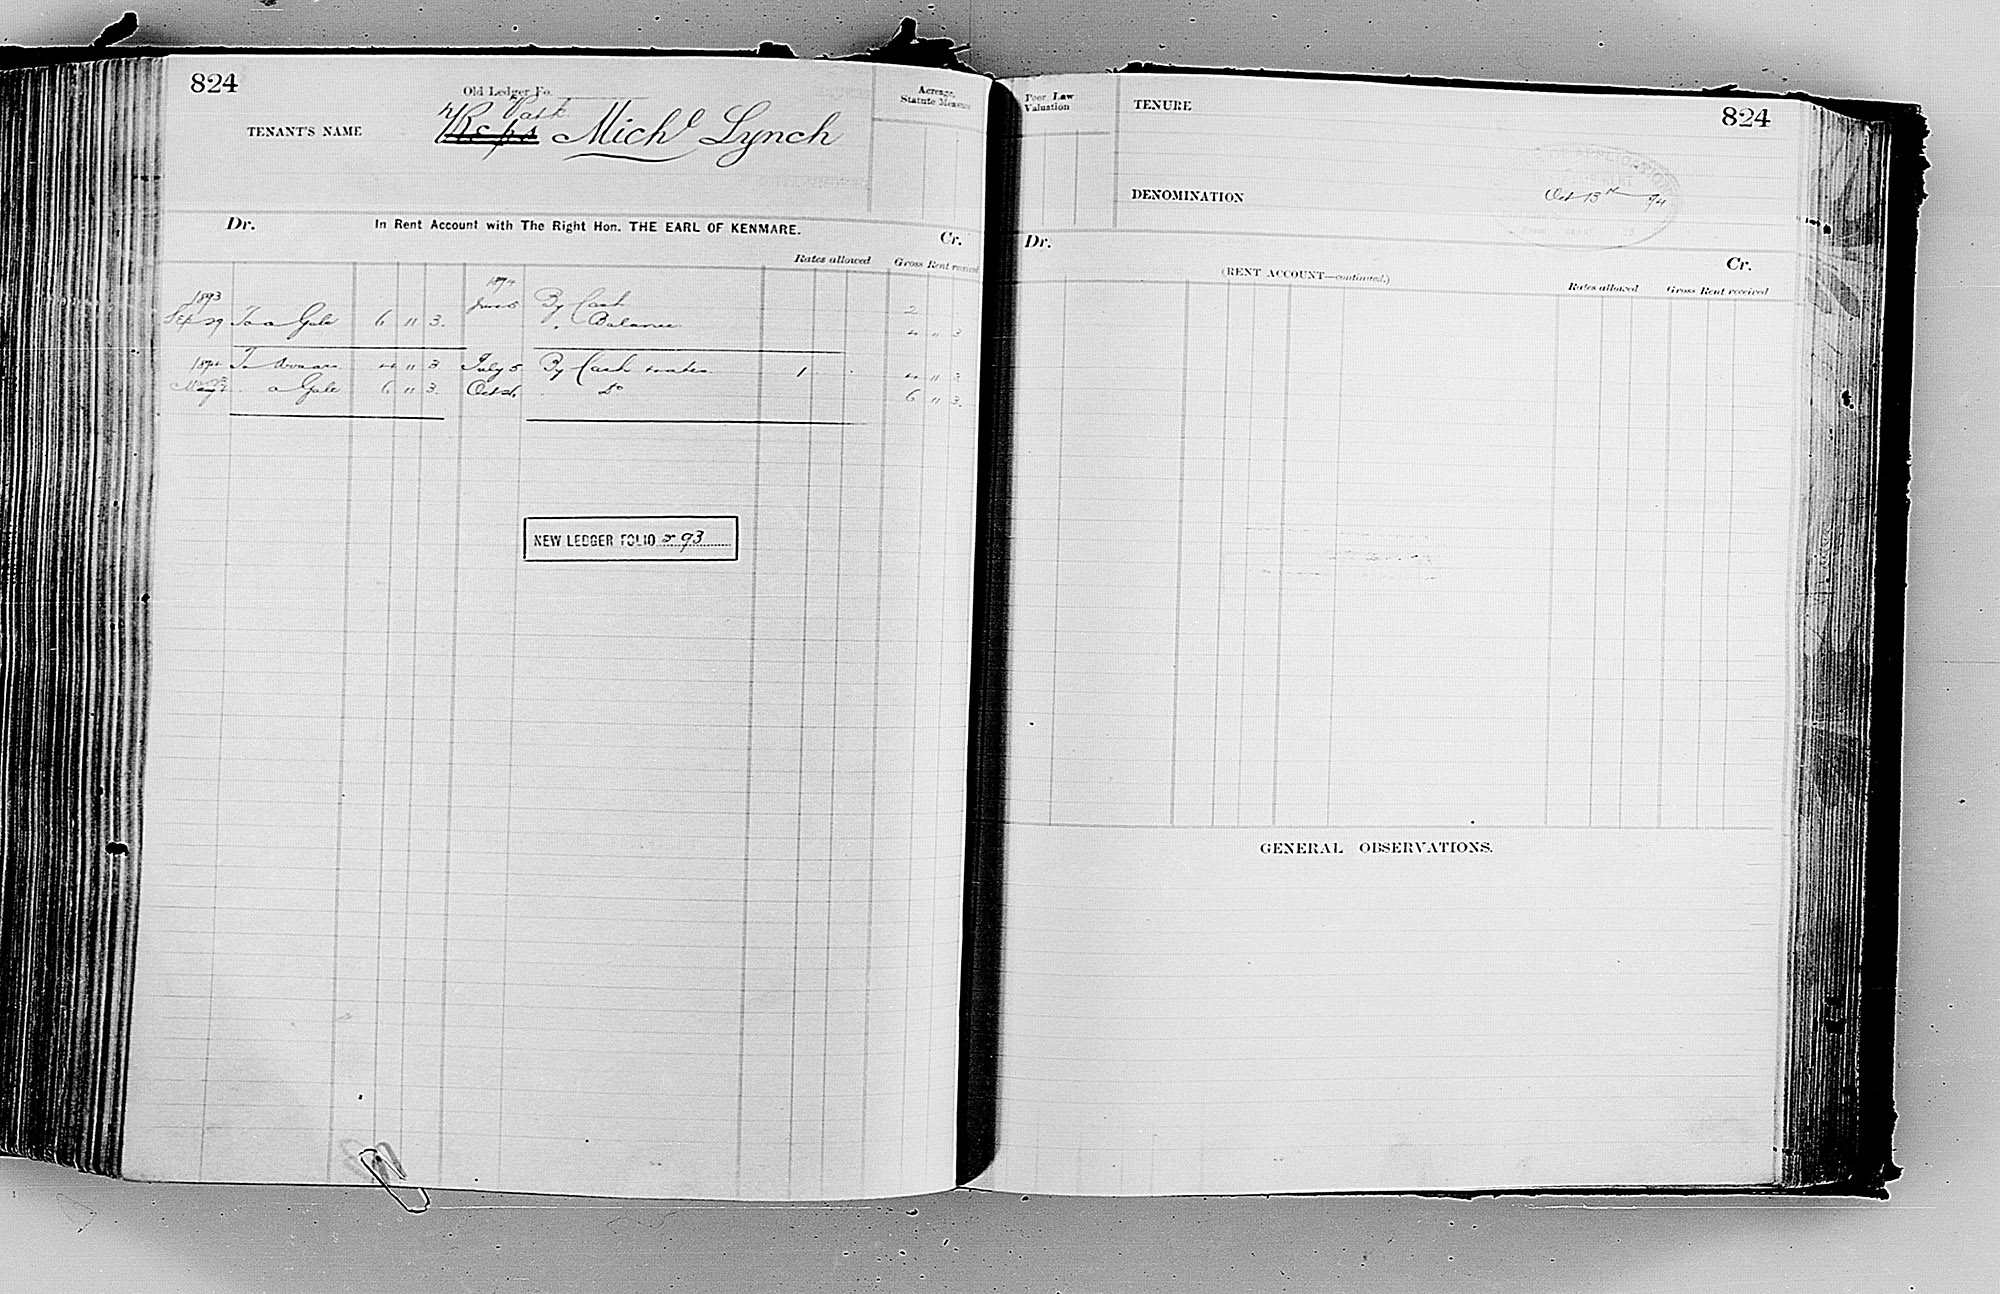 824
Old Ledger Fo.
Patk
TENANT'S NAME
Reps Michl Lynch
Acreage,
Statute Measure
Dr.
In Rent Account with The Right Hon. THE EARL OF KENMARE.
Cr.
Rates allowed
Gross Rent received
1893
1894
June 5 By Cash 2
Sep 29 To a Gale 6 11 3.
" Balance 4 11 3
1894 To Arrears 4 11 3 July 5 By Cash & rates 1 4 11 3.
May a Gale 6 11 3. Oct Do 6 11 3.
NEW LEDGER FOLIO 293
Poor Law
Valuation
TENURE
824
DENOMINATION
Oct 13th 94
Dr.
Cr.
(RENT ACCOUNT—continued.)
Rates allowed
Gross Rent received
GENERAL OBSERVATIONS.